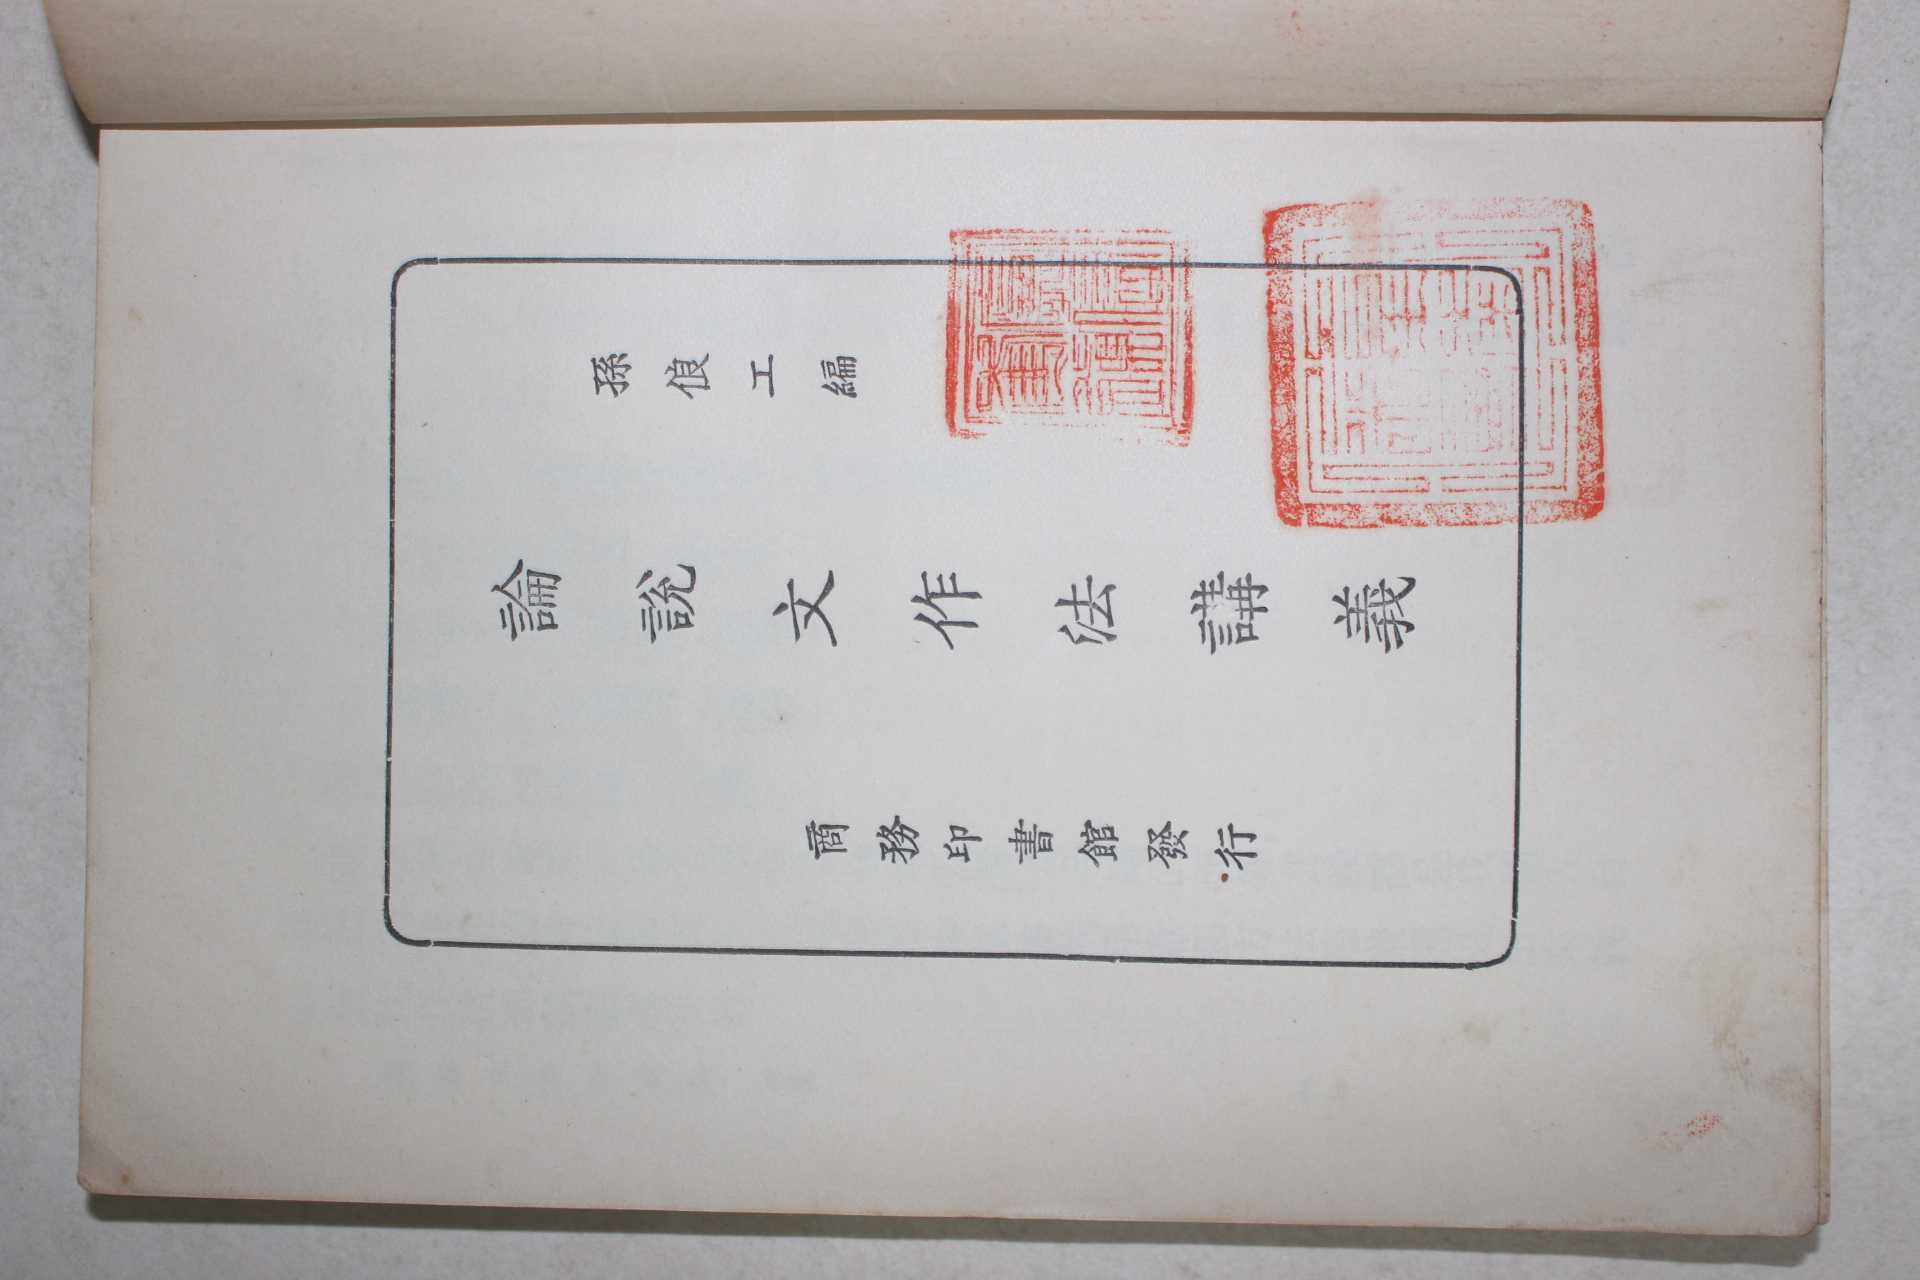 孫俍工編
論說文作法講義
商務印書館發行